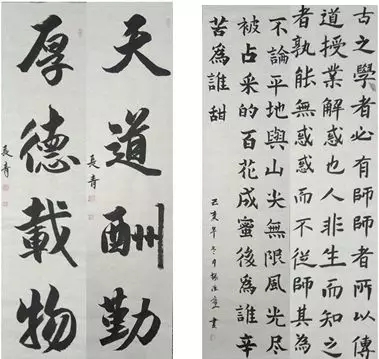 天道酬勤
長青
厚德載物
長青
古之學者必有師師者所以傳
道授業解惑也人非生而知之
者孰能無惑惑而不從師其為
不論平地與山尖無限風光盡
被占采的百花成蜜後為誰辛
苦為誰甜
己亥年冬月書